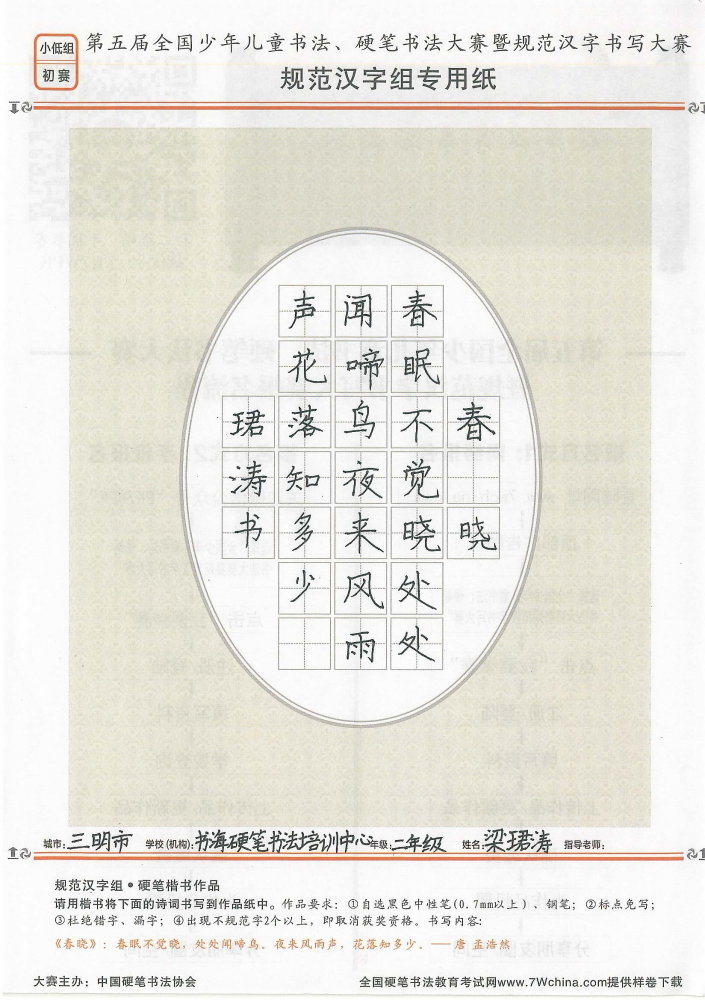 小低组
初赛
第五届全国少年儿童书法、硬笔书法大赛暨规范汉字书写大赛
规范汉字组专用纸
春晓
春眠不觉晓处处
闻啼鸟夜来风雨
声花落知多少
珺涛书
城市：三明市 学校(机构)：书海硬笔书法培训中心 年级：二年级 姓名：梁珺涛 指导老师：
规范汉字组●硬笔楷书作品
请用楷书将下面的诗词书写到作品纸中。作品要求：①自选黑色中性笔(0.7mm以上)、钢笔；②标点免写；
③杜绝错字、漏字；④出现不规范字2个以上，即取消获奖资格。书写内容：
《春晓》：春眠不觉晓，处处闻啼鸟。夜来风雨声，花落知多少。——唐 孟浩然
大赛主办：中国硬笔书法协会 全国硬笔书法教育考试网www.7Wchina.com提供样卷下载